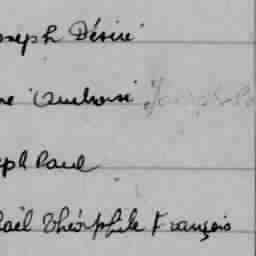 oseph Désiré
ne Ambroise
eph Paul
aël Théophile François